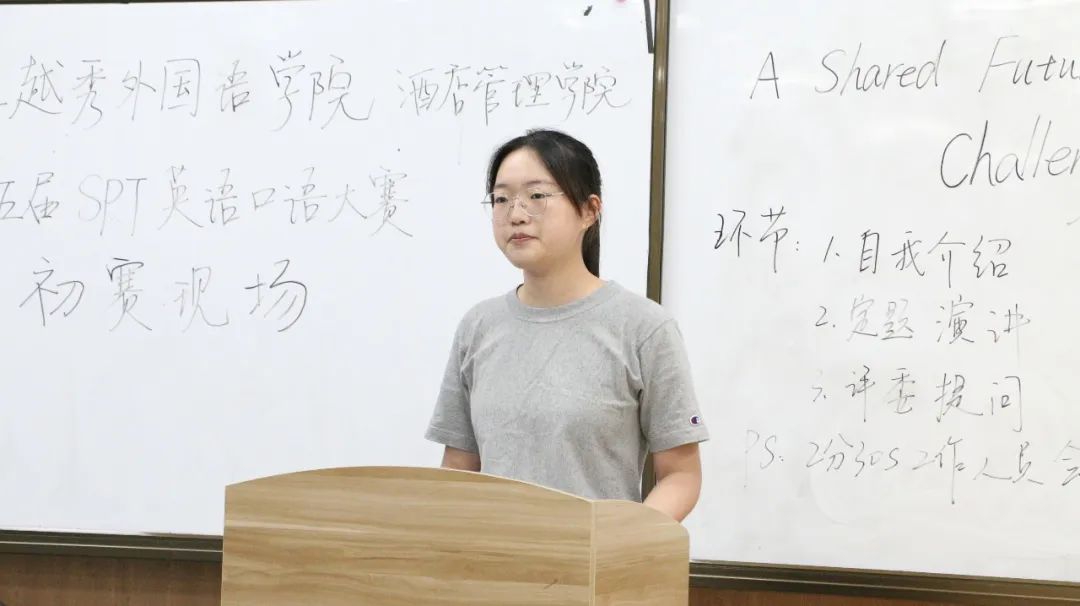 越秀外国语学院 酒店管理学院
五届 SPT 英语口语大赛
初赛现场
A Shared Futu
Challen
环节: 1. 自我介绍
2. 定题演讲
3. 评委提问
PS: 2分30s工作人员会